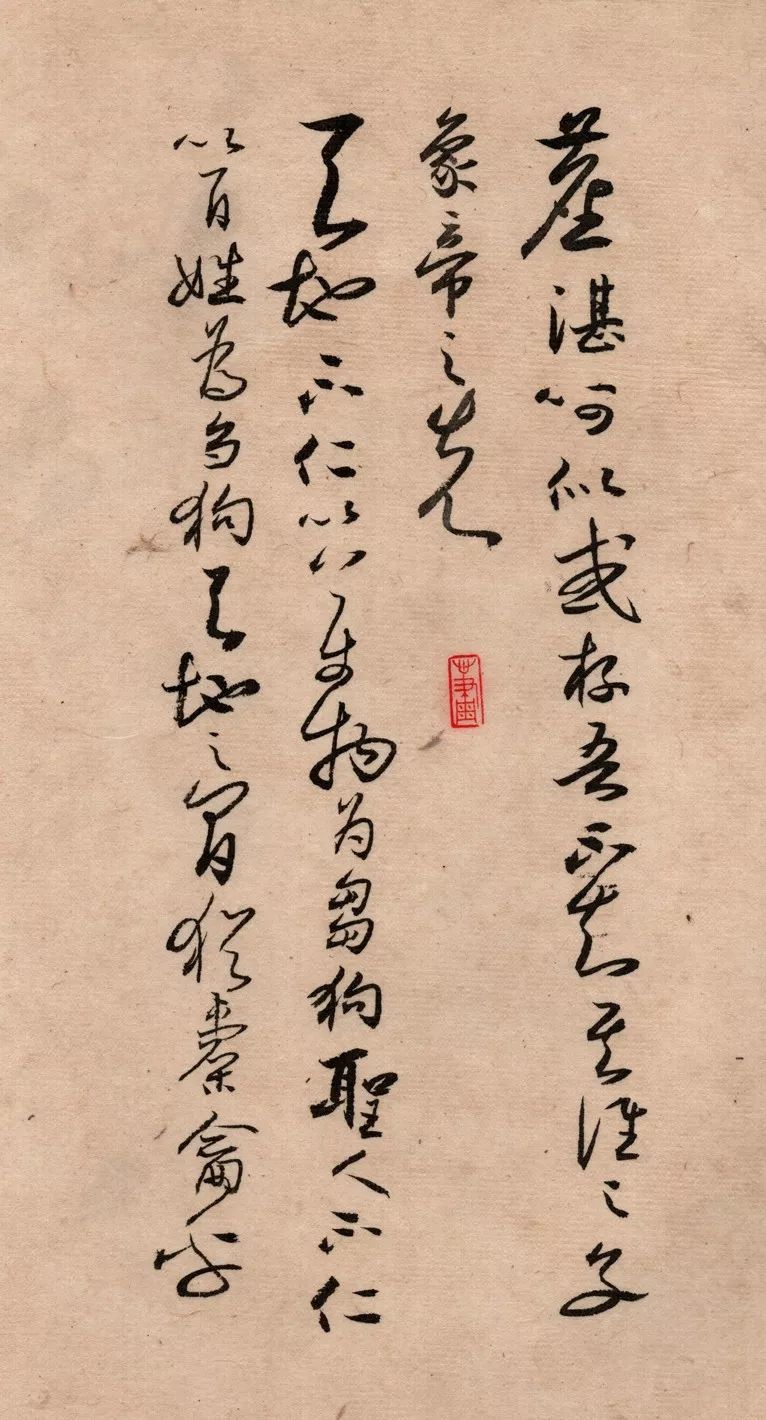 塵湛呵似或存吾不知其誰之子
象帝之先
天地不仁以万物为芻狗聖人不仁
以百姓為刍狗天地之間猶橐龠乎